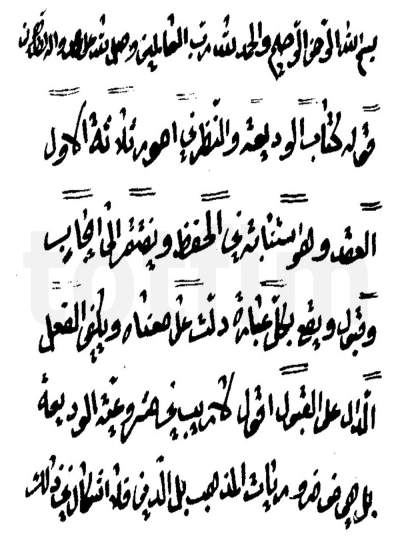 بسم الله الرحمن الرحيم والحمد لله رب العالمين وصلى الله على محمد واله الطاهرين
قوله كتاب الوديعة والنظر في امور ثلاثة الاول
العقد وهو استنابة في الحفظ ويفتقر الى ايجاب
وقبول ويقع بكل عبارة دلت على معناه ويكفى الفعل
الدال على القبول اقول لا ريب في مشروعية الوديعة
بل هى من ضروريات المذهب بل الدين فلا اشكال في ذلك